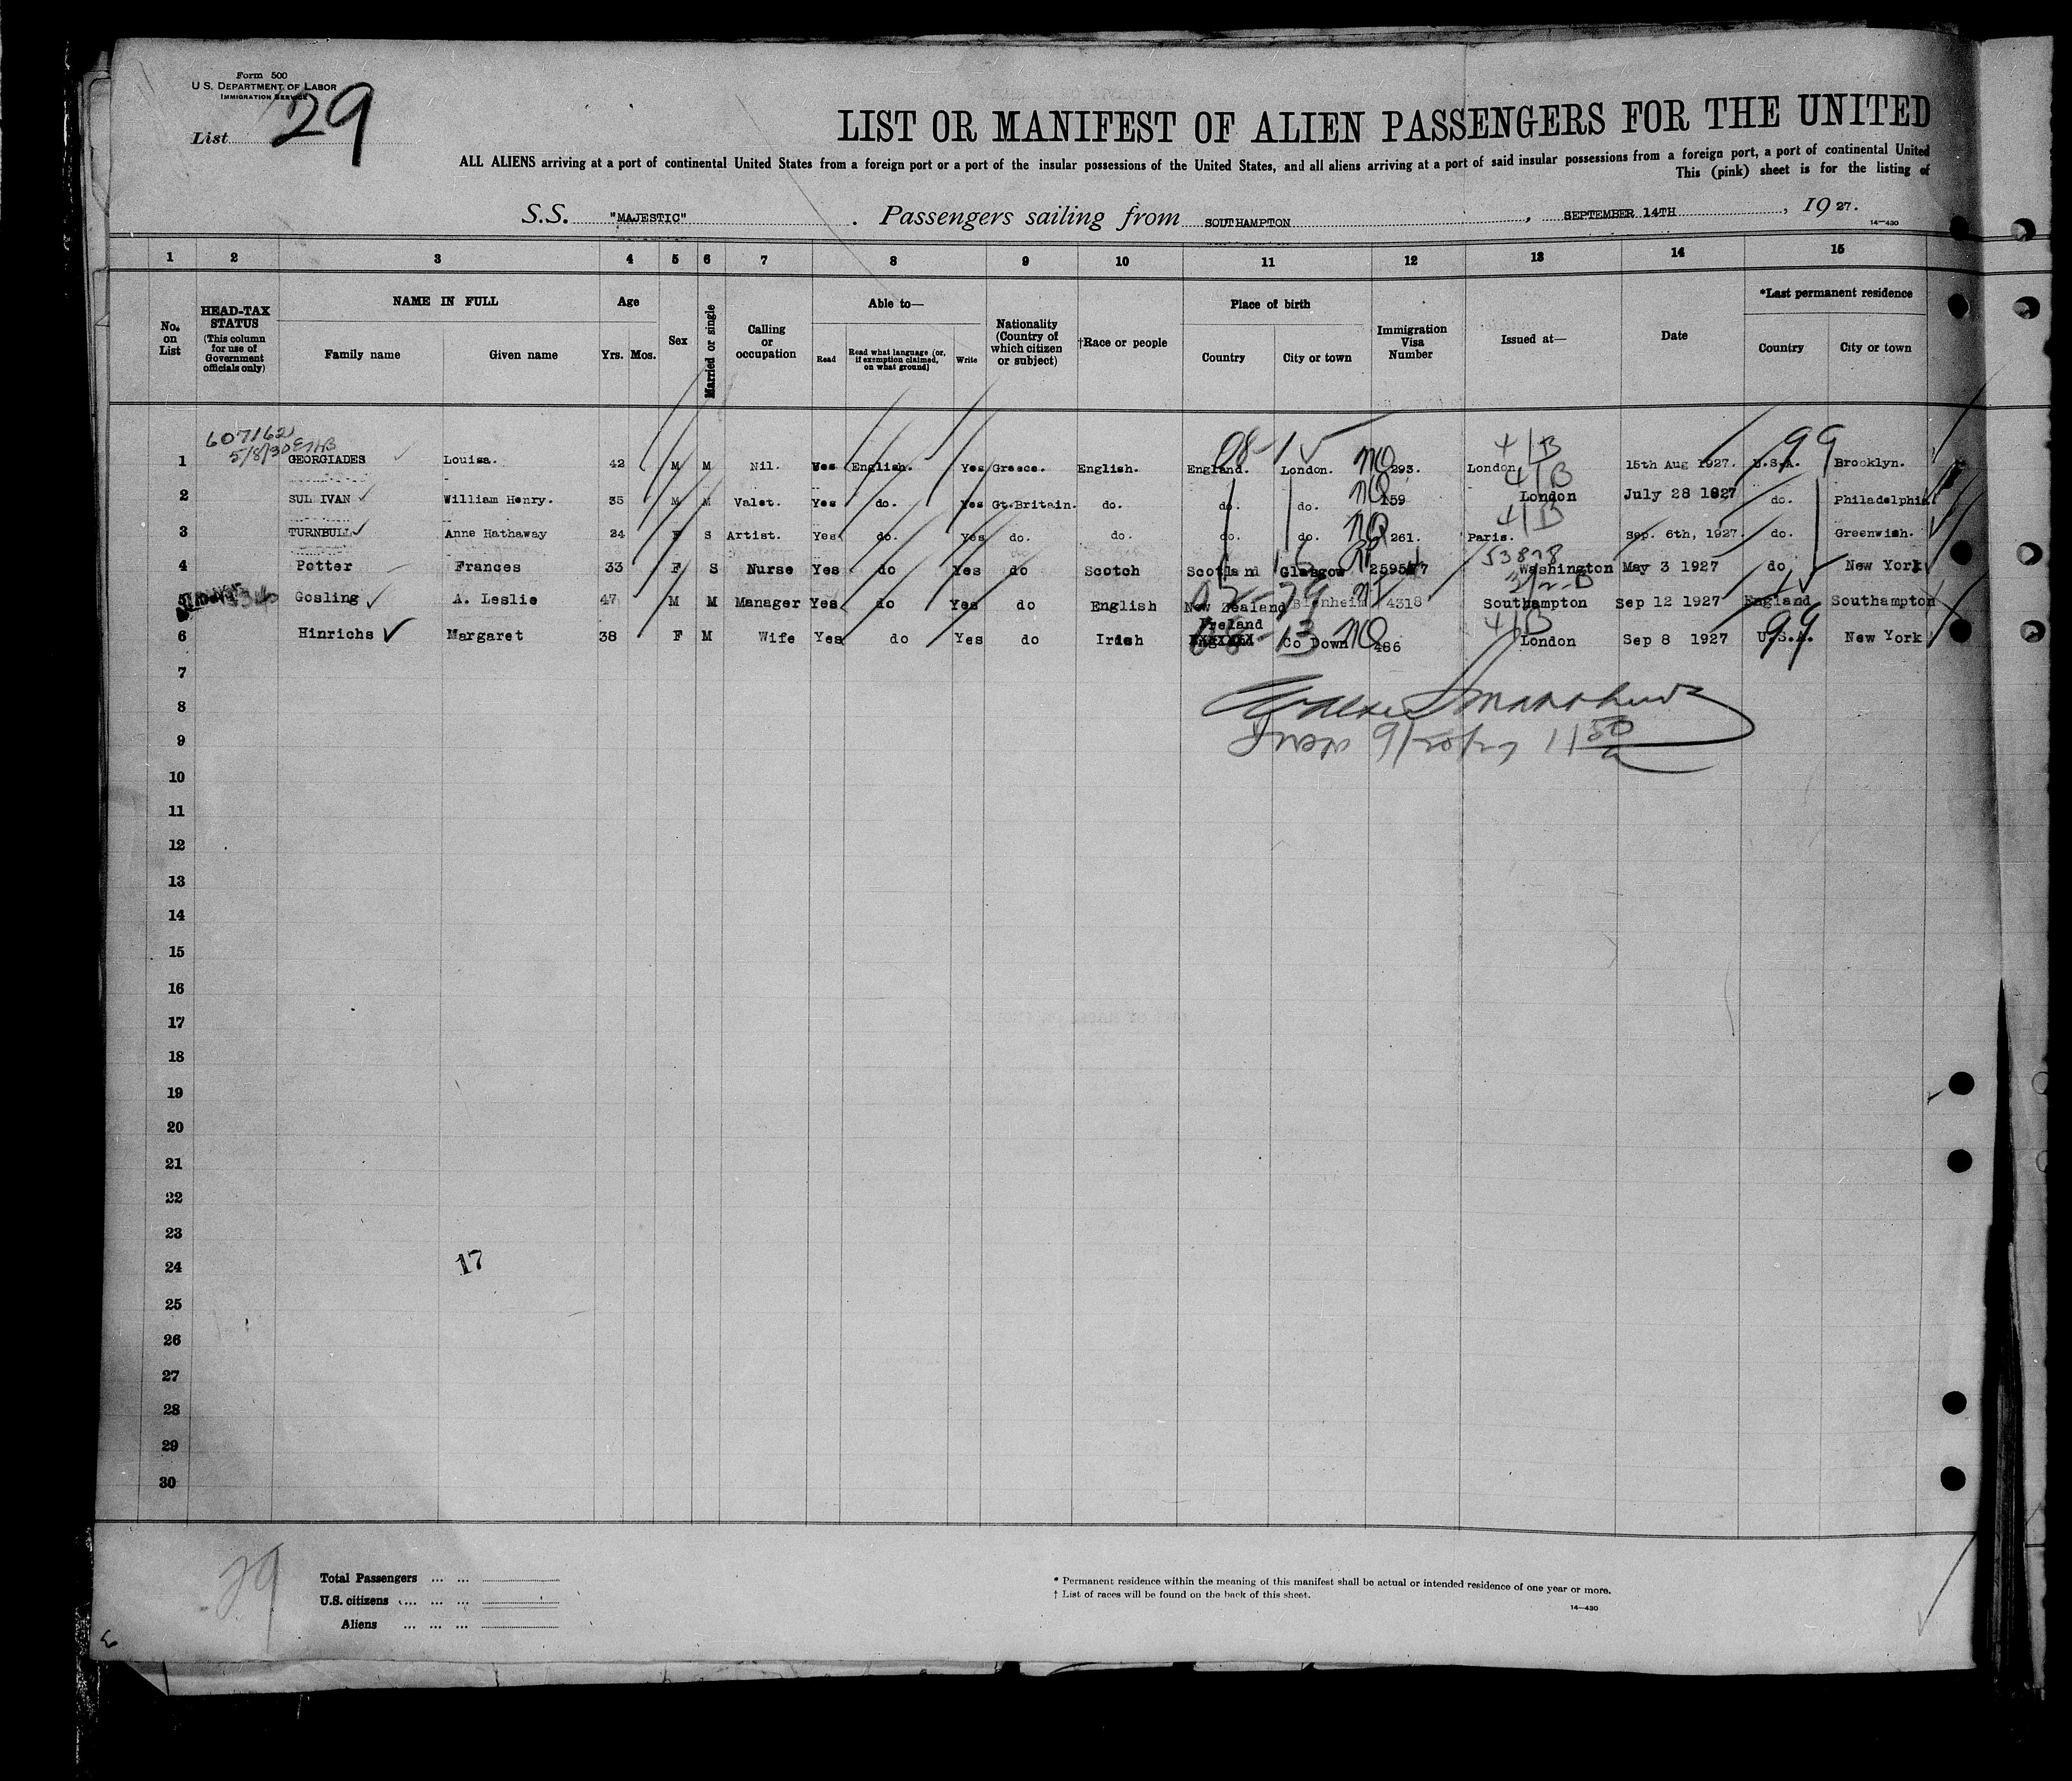 Form 500
U. S. DEPARTMENT OF LABOR
IMMIGRATION SERVICE
List 29
LIST OR MANIFEST OF ALIEN PASSENGERS FOR THE UNITED
ALL ALIENS arriving at a port of continental United States from a foreign port or a port of the insular possessions of the United States, and all aliens arriving at a port of said insular possessions from a foreign port, a port of continental United
This (pink) sheet is for the listing of
S.S. "MAJESTIC". Passengers sailing from SOUTHAMPTON, SEPTEMBER 14TH, 1927.
14—430
1 2 3 4 5 6 7 8 9 10 11 12 13 14 15
No. on List
HEAD-TAX STATUS (This column for use of Government officials only)
NAME IN FULL Family name Given name
Age Yrs. Mos.
Sex
Married or single
Calling or occupation
Able to— Read Read what language (or, if exemption claimed, on what ground) Write
Nationality (Country of which citizen or subject)
†Race or people
Place of birth Country City or town
Immigration Visa Number
Issued at—
Date
*Last permanent residence Country City or town
607162
5/8/30
08-15 4/B 99
1 GEORGIADES Louisa. 42 M M Nil. Yes English. Yes Greece. English. England. London. NQ 293. London 15th Aug 1927. U.S.A. Brooklyn.
4/B
2 SUL IVAN William Henry. 35 M M Valet. Yes do. Yes Gt.Britain. do. do. do. NQ 159 London July 28 1927 do. Philadelphia
4/B
3 TURNBULL Anne Hathaway 24 F S Artist. Yes do. Yes do. do. do. do. NQ 261. Paris. Sep. 6th, 1927. do. Greenwish.
53878
4 Potter Frances 33 F S Nurse Yes do Yes do Scotch Scotland Glasgow RP Washington May 3 1927 do New York
3/2-B
5 Gosling A. Leslie 47 M M Manager Yes do Yes do English New Zealand Blenheim 4318 Southampton Sep 12 1927 England Southampton
Ireland 4/B 99
6 Hinrichs Margaret 38 F M Wife Yes do Yes do Irish England Co Down NQ 486 London Sep 8 1927 U.S.A. New York
7
8
9
10
11
12
13
14
15
16
17
18
19
20
21
22
23
24 17
25
26
27
28
29
30
29
Total Passengers ... ...
U.S. citizens ... ... ...
Aliens ... ... ...
* Permanent residence within the meaning of this manifest shall be actual or intended residence of one year or more.
† List of races will be found on the back of this sheet.
14—430